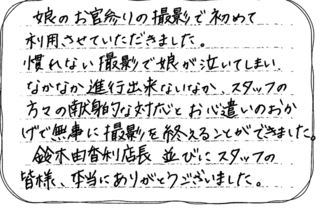 娘のお宮参りの撮影で初めて
利用させていただきました。
慣れない撮影で娘が泣いてしまい
なかなか進行出来ないなか、スタッフの
方々の献身的な対応とお心遣いのおか
げで無事に撮影を終えることができました。
鈴木由香利店長 並びにスタッフの
皆様、本当にありがとうございました。